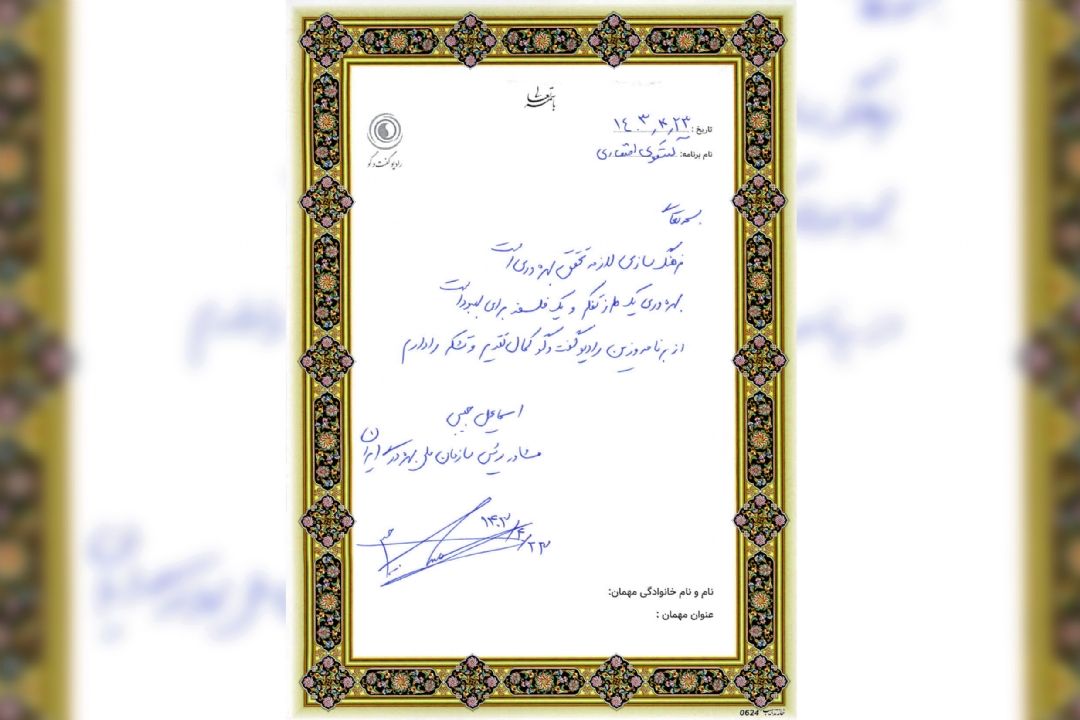 باسمه تعالی
رادیو گفت و گو
تاریخ: ۱۴۰۳/۴/۲۳
نام برنامه: گفتگوی اقتصادی
بسمه تعالی
فرهنگ سازی لازمه تحقق بهره وری است
بهره وری یک طرز تفکر و یک فلسفه برای بهبود است
از برنامه وزین رادیو گفت و گو کمال تقدیر و تشکر را دارم
اسماعیل
مشاور رئیس سازمان ملی بهره وری ایران
۱۴۰۳/۴/۲۳
نام و نام خانوادگی مهمان:
عنوان مهمان :
0624